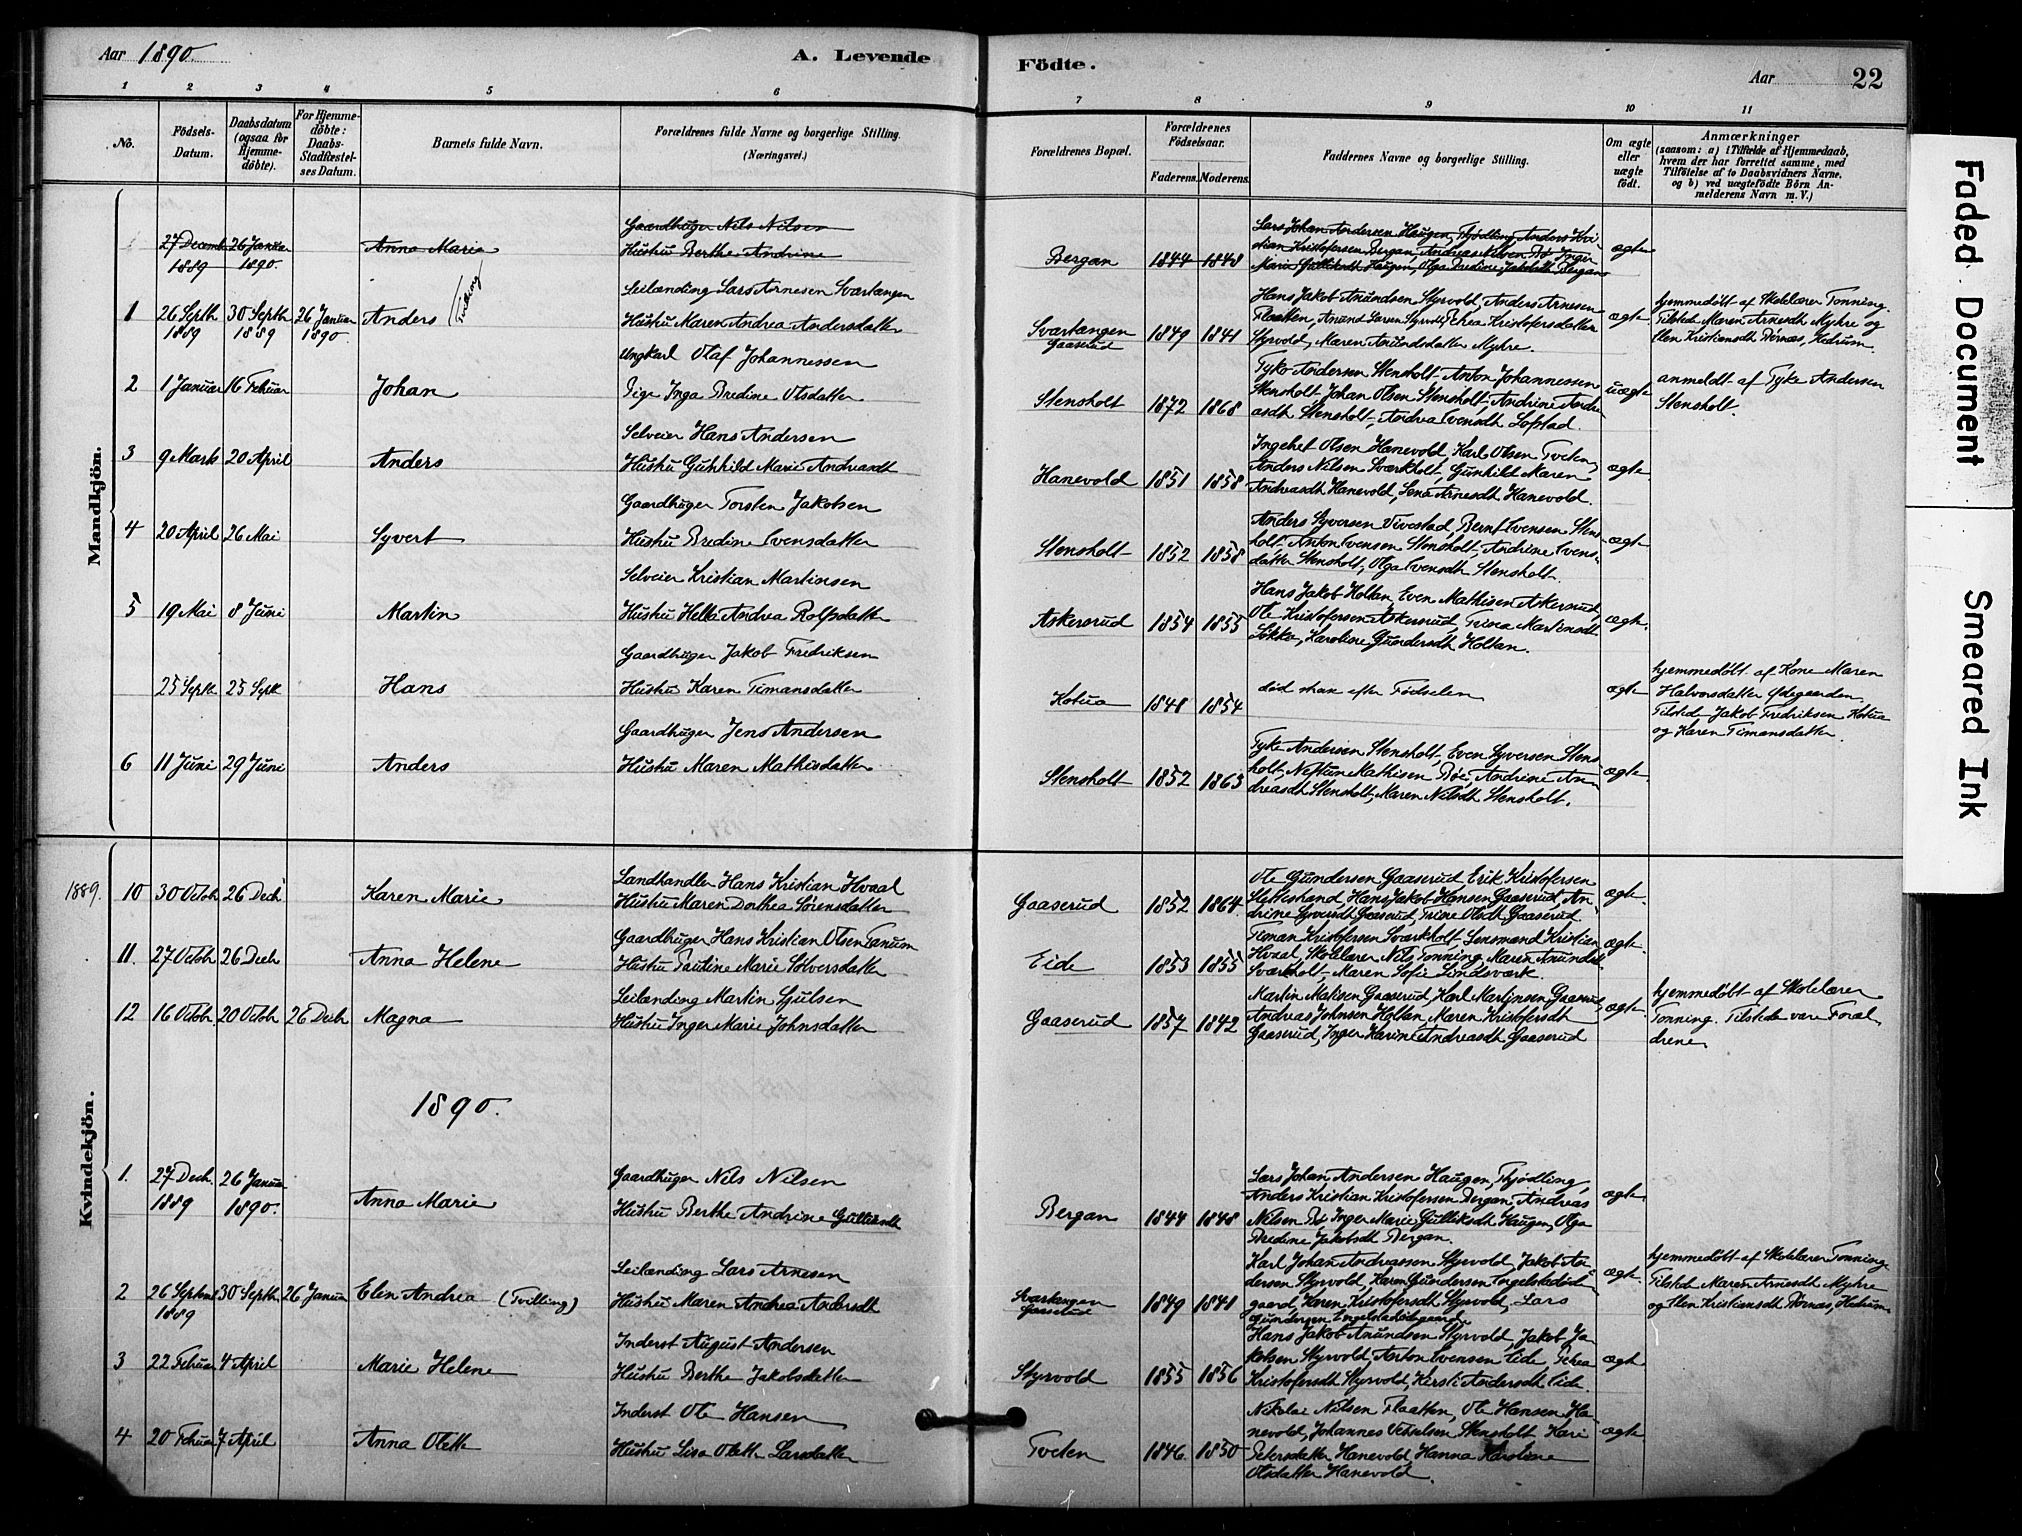 Aar 1890.
A. Levende
Födte.
Aar
22
1 2 3 4 5 6 7 8 9 10 11
No.
Födsels-
Datum.
Daabsdatum
(ogsaa for
Hjemme-
döbte).
For Hjemme-
döbte:
Daabs-
Stadfæstel-
ses Datum.
Barnets fulde Navn.
Forældrenes fulde Navne og borgerlige Stilling.
(Næringsvei.)
Forældrenes Bopæl.
Forældrenes
Födselsaar.
Faderens. Moderens.
Faddernes Navne og borgerlige Stilling.
Om ægte
eller
uægte
födt.
Anmærkninger
(saasom: a) i Tilfælde af Hjemmedaab,
hvem der har forrettet samme, med
Tilföielse af to Daabsvidners Navne,
og b) ved uægtefödte Börn An-
melderens Navn m. V.)
Mandkjön.
27 Decemb 26 Januar
1889 1890.
Anna Marie
Gaardbruger Nils Nilsen
Hustru Berthe Andrine
Bergan 1844 1848
Lars Johan Andersen Haugen, Fjødling, Anders Kri-
stian Kristofersen Bergan, Andreas Nilsen Bø, Inger
Marie Gulliksdt Haugen, Olga Bredine Jakobsdt Bergan
ægte
1 26 Septb 30 Septb 26 Januar
1889 1889 1890.
Anders (Tvilling)
Leilænding Lars Arnesen Svartangen
Hustru Maren Andrea Andersdatter
Svartangen
Gaaserud
1849 1841
Hans Jakob Anundsen Styrvold, Anders Arnesen
Flaatten, Anund Larsen Styrvold, Thea Kristofersdatter
Styrvold, Maren Anundsdatter Myhre.
ægte.
hjemmedøbt af Skolelærer Tonning.
Tilsted Maren Arnesdt Myhre og
Elen Kristiansdt Bernæs, Hedrum.
2 1 Januar 16 Februar
Johan
Ungkarl Olaf Johannessen
Pige Inga Bredine Olsdatter
Stensholt 1872 1868
Tyke Andersen Stensholt, Anton Johannessen
Stensholt, Johan Olsen Stensholt, Andrine Andre-
asdt Stensholt, Andrea Evensdt Løfstad.
uægte
anmeldt af Tyke Andersen
Stensholt.
3 9 Marts 20 April
Anders
Selveier Hans Andersen
Hustru Gunhild Marie Andreasdt
Hanevold 1851 1858
Ingebret Olsen Hanevold, Karl Olsen Tveten,
Anders Nilsen Sværkholt, Gunhild Maren
Andreasdt Hanevold, Lena Arnesdt Hanevold.
ægte
4 20 April 26 Mai
Syvert
Gaardbruger Torsten Jakobsen
Hustru Bredine Evensdatter
Stensholt 1852 1858
Anders Syversen Vivestad, Bernt Evensen Stens-
holt, Anton Evensen Stensholt, Andrine Evens-
datter Stensholt, Olga Evensdt Stensholt.
ægte
5 19 Mai 8 Juni
Martin
Selveier Kristian Martinsen
Hustru Helle Andrea Rolfsdatter
Askersrud 1854 1855
Hans Jakob Holtan, Even Mathisen Askersrud,
Ole Kristofersen Askersrud, Trine Martinsdt
Løkka, Karoline Gundersdt Holtan.
ægte.
25 Septb 25 Septb
Hans
Gaardbruger Jakob Fredriksen
Hustru Karen Timansdatter
Kotua 1848 1854
død strax efter Fødselen
ægte
hjemmedøbt af Kone Maren
Halvorsdatter Ødegaarden,
Tilstede Jakob Fredriksen Kotua
og Karen Timansdatter.
6 11 Juni 29 Juni
Anders
Gaardbruger Jens Andersen
Hustru Maren Mathisdatter
Stensholt 1852 1863
Tyke Andersen Stensholt, Even Syversen Stens-
holt, Neptun Mathisen Bøe, Andrine An-
dreasdt Stensholt, Maren Nilsdt Stensholt.
ægte
Kvindekjön.
1889. 10 30 Octob 26 Decb
Karen Marie
Landhandler Hans Kristian Hvaal
Hustru Maren Dorthea Sørensdatter
Gaaserud 1852 1864.
Ole Gundersen Gaaserud, Erik Kristofersen
Slettestrand, Hans Jakob Hansen Gaaserud, An-
drine Syversdt Gaaserud, Trine Olsdt Gaaserud.
ægte.
11. 27 Octob 26 Decb
Anna Helene
Gaardbruger Hans Kristian Olsen Fanum
Hustru Pauline Marie Solversdatter
Eide 1853 1855
Timan Kristofersen Sværkholt, Lensmand Kristian
Hvaal, Skolelærer Nils Tonning, Maren Anundsdt
Sværkholt, Maren Sofie Lindsværk.
ægte.
12 16 Octob. 20 Octob 26 Decb
Magna
Leilænding Martin Hjulsen
Hustru Inger Marie Johnsdatter
Gaaserud 1857 1842
Martin Matisen Gaaserud, Karl Martinsen Gaaserud,
Andreas Johnsen Holtan, Maren Kristofersdt
Gaaserud, Inger Karine Andreasdt Gaaserud
ægte.
hjemmedøbt af Skolelærer
Tonning. Tilstede vare Foræl
drene.
1890.
1. 27 Decb. 26 Januar
1889 1890.
Anna Marie
Gaardbruger Nils Nilsen
Hustru Berthe Andrine Gulliksdt
Bergan 1844 1848
Lars Johan Andersen Haugen, Fjødling,
Anders Kristian Kristofersen Bergan, Andreas
Nilsen Bø, Inger Marie Gulliksdt Haugen, Olga
Bredine Jakobsdt Bergan.
ægte
2 26 Septemb 30 Septb 26 Januar
1889
Elen Andrea (Tvilling)
Leilænding Lars Arnesen
Hustru Maren Andrea Andersdt
Svartangen
Gaaserud
1849 1841
Karl Johan Andreassen Styrvold, Jakob An-
dersen Styrvold, Karen Gundersen Engelstadøde-
gaard, Karen Kristofersdt Styrvold, Lars
Gundersen Engelstadødegaard.
ægte
hjemmedøbt af Skolelærer Tonning.
Tilsted Maren Arnesdt Myhre
og Elen Kristiansdt Bernæs, Hedrum.
3 22 Februar 4 April
Marie Helene
Inderst August Andersen
Hustru Berthe Jakobsdatter
Styrvold 1855 1856
Hans Jakob Anundsen Styrvold, Jakob Ja-
kobsen Styrvold, Anton Evensen Eide, Thea
Kristofersdt Styrvold, Kirsti Andersdt Eide.
ægte
4 20 Februar 7 April
Anna Olette
Inderst Ole Hansen
Hustru Lisa Olette Larsdatter
Tveten 1846. 1850
Nikolai Nilsen Flaatten, Ole Hansen Ha-
nevold, Johannes Vetlesen Stensholt, Kari
Petersdatter Hanevold, Hanna Karoline
Olsdatter Hanevold.
ægte.
Faded Document
Smeared Ink